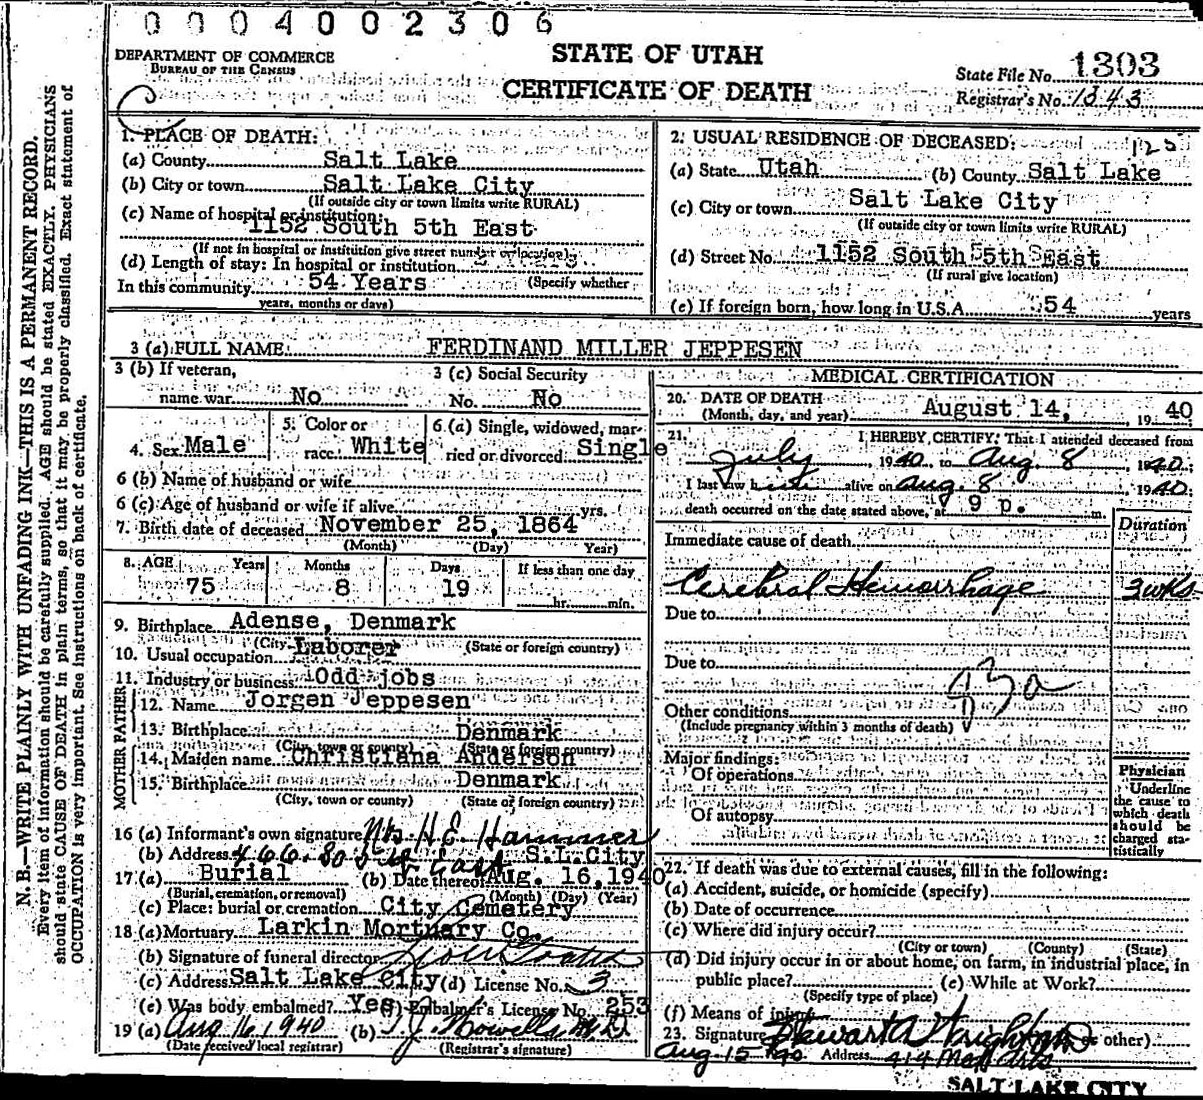 0 0 0 4 0 0 2 3 0 6
DEPARTMENT OF COMMERCE
BUREAU OF THE CENSUS
STATE OF UTAH
CERTIFICATE OF DEATH
State File No. 1303
Registrar's No. 1343
N. B.—WRITE PLAINLY WITH UNFADING INK—THIS IS A PERMANENT RECORD.
Every item of information should be carefully supplied. AGE should be stated EXACTLY. PHYSICIANS
should state CAUSE OF DEATH in plain terms, so that it may be properly classified. Exact statement of
OCCUPATION is very important. See instructions on back of certificate.
1. PLACE OF DEATH:
(a) County Salt Lake
(b) City or town Salt Lake City
(If outside city or town limits write RURAL)
(c) Name of hospital or institution:
1152 South 5th East
(If not in hospital or institution give street number or location)
(d) Length of stay: In hospital or institution
In this community 54 Years (Specify whether
years, months or days)
2. USUAL RESIDENCE OF DECEASED:
(a) State Utah (b) County Salt Lake
(c) City or town Salt Lake City
(If outside city or town limits write RURAL)
(d) Street No. 1152 South 5th East
(If rural give location)
(e) If foreign born, how long in U.S.A. 54 years
3 (a) FULL NAME FERDINAND MILLER JEPPESEN
3 (b) If veteran,
name war No
3 (c) Social Security
No. No
4. Sex Male
5. Color or
race White
6. (a) Single, widowed, mar-
ried or divorced Single
6 (b) Name of husband or wife
6 (c) Age of husband or wife if alive yrs.
7. Birth date of deceased November 25, 1864
(Month) (Day) Year)
8. AGE Years Months Days If less than one day
75 8 19 hr. min.
9. Birthplace Adense, Denmark
(City (State or foreign country)
10. Usual occupation Laborer
11. Industry or business Odd jobs
FATHER
12. Name Jorgen Jeppesen
13. Birthplace Denmark
(City, town or county) (State or foreign country)
MOTHER
14. Maiden name Christiana Anderson
15. Birthplace Denmark
(City, town or county) (State or foreign country)
16 (a) Informant's own signature H.E. Hammer
(b) Address 466 East S.L.City
17 (a) Burial (b) Date thereof Aug. 16, 1940
(Burial, cremation, or removal) (Month) (Day) (Year)
(c) Place: burial or cremation City Cemetery
18 (a) Mortuary Larkin Mortuary Co.
(b) Signature of funeral director
(c) Address Salt Lake City (d) License No. 3
(e) Was body embalmed? Yes (f) Embalmer's License No. 253
19 (a) Aug 16, 1940 (b) T. J. Howells M.D.
(Date received local registrar) (Registrar's signature)
MEDICAL CERTIFICATION
20. DATE OF DEATH
(Month, day, and year) August 14, 19 40
21. I HEREBY CERTIFY: That I attended deceased from
July, 1940, to Aug. 8, 1940.
I last saw him alive on Aug. 8, 1940.
death occurred on the date stated above, at 9 p. m.
Duration
Immediate cause of death
Cerebral Hemorrhage 3 wks
Due to
Due to
Other conditions
(Include pregnancy within 3 months of death)
Major findings:
Of operations
Of autopsy
Physician
Underline
the cause to
which death
should be
charged sta-
tistically
22. If death was due to external causes, fill in the following:
(a) Accident, suicide, or homicide (specify)
(b) Date of occurrence
(c) Where did injury occur?
(City or town) (County) (State)
(d) Did injury occur in or about home, on farm, in industrial place, in
public place? (e) While at Work?
(Specify type of place)
(f) Means of injury
23. Signature Stewart A Wright M.D. or other)
Aug. 15 '40 Address 414 Med Arts
SALT LAKE CITY